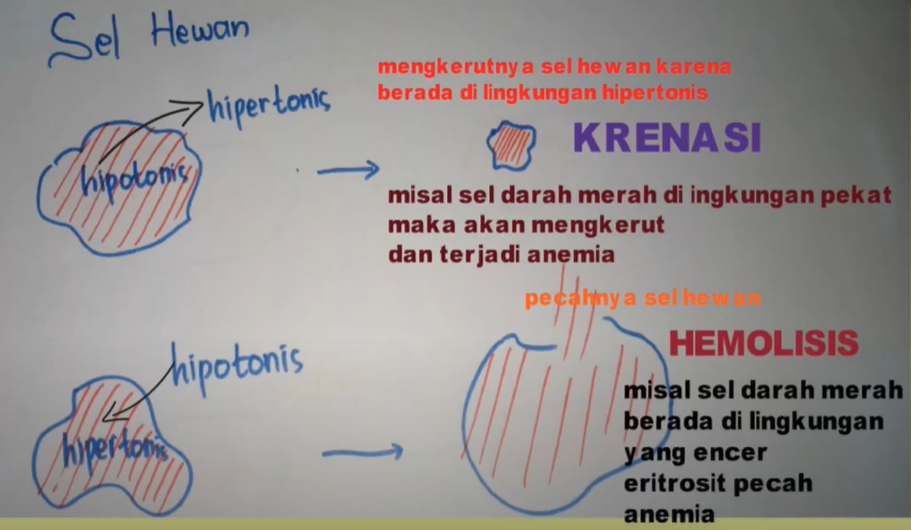 Sel Hewan
mengkerutnya sel hewan karena
berada di lingkungan hipertonis
hipertonis
hipotonis
KRENASI
misal sel darah merah di ingkungan pekat
maka akan mengkerut
dan terjadi anemia
pecahnya sel hewan
hipotonis
HEMOLISIS
hipertonis
misal sel darah merah
berada di lingkungan
yang encer
eritrosit pecah
anemia